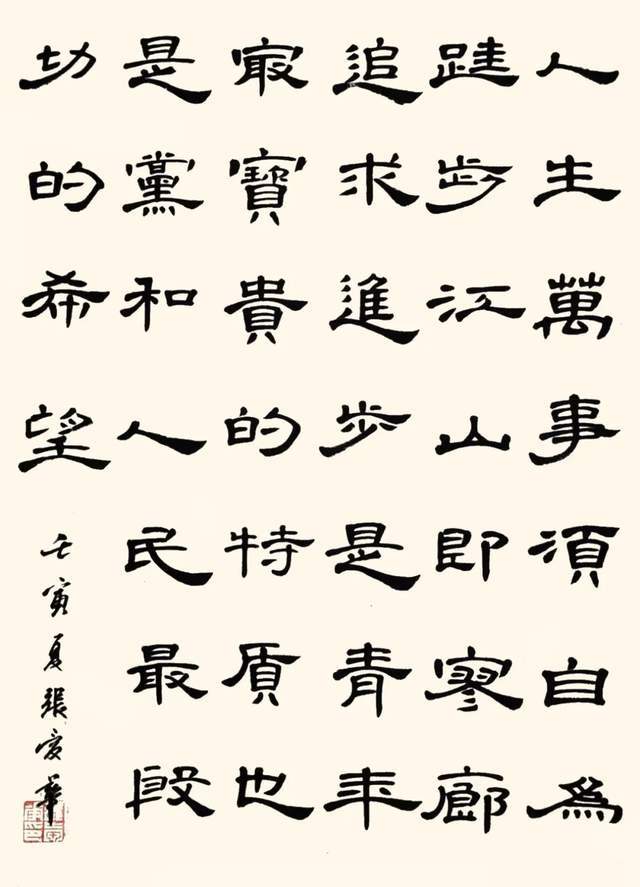 人生萬事須自為
跬步江山即寥廓
追求進步是青年
最寶貴的特質也
是黨和人民最殷
切的希望
壬寅夏張愛華